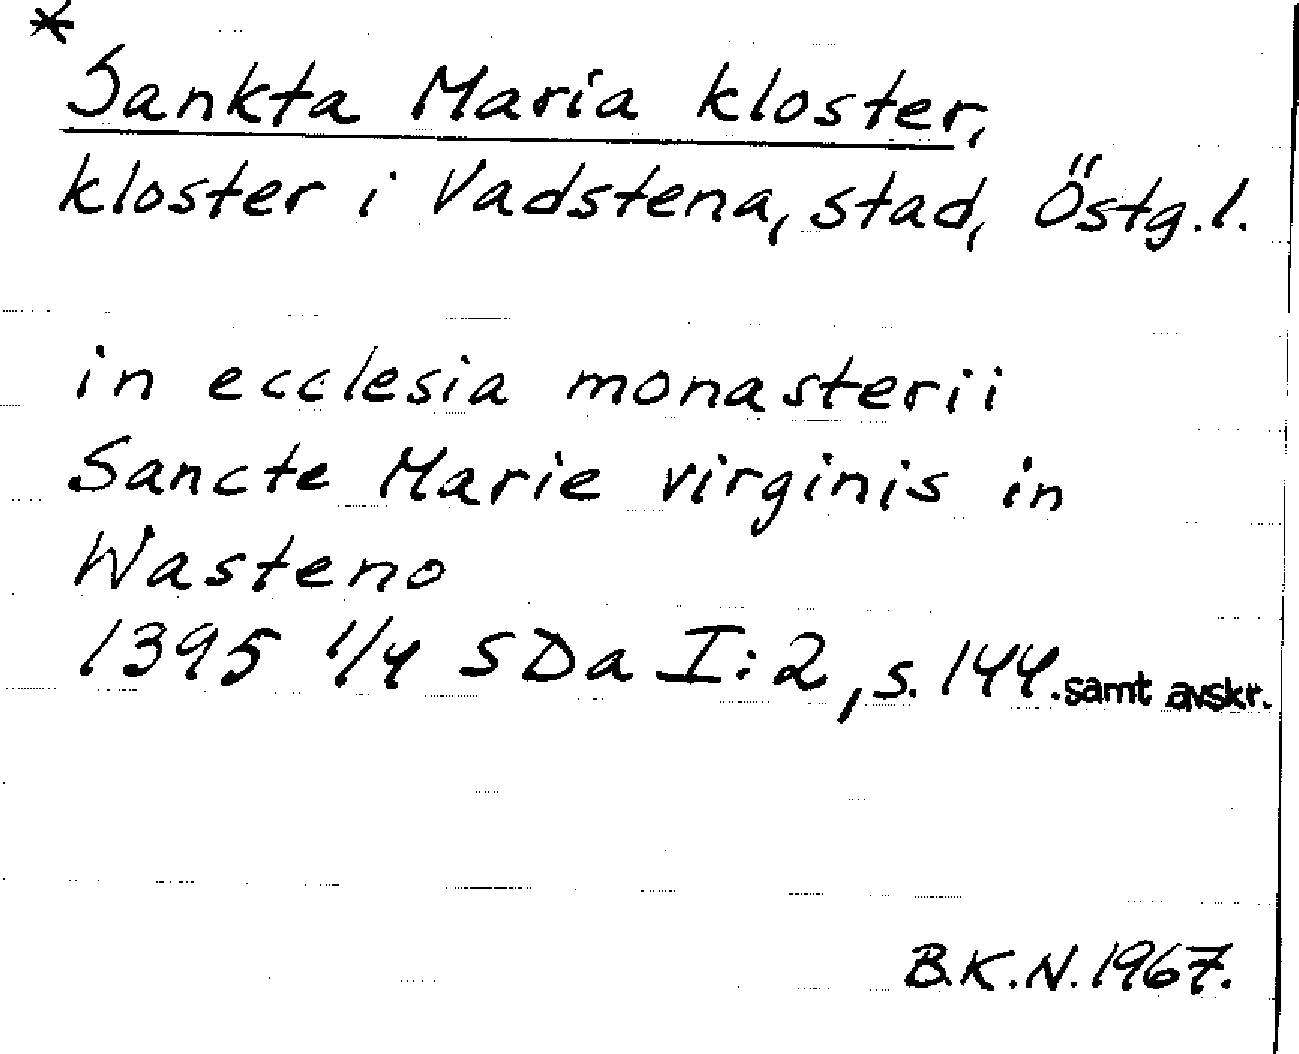 *
Sankta Maria kloster,
kloster i Vadstena, stad, Östg.l.
in ecclesia monasterii
Sancte Marie virginis in
Wasteno
1395 1/4 SDa I:2, s. 144. samt avskr.
B.K.N. 1967.